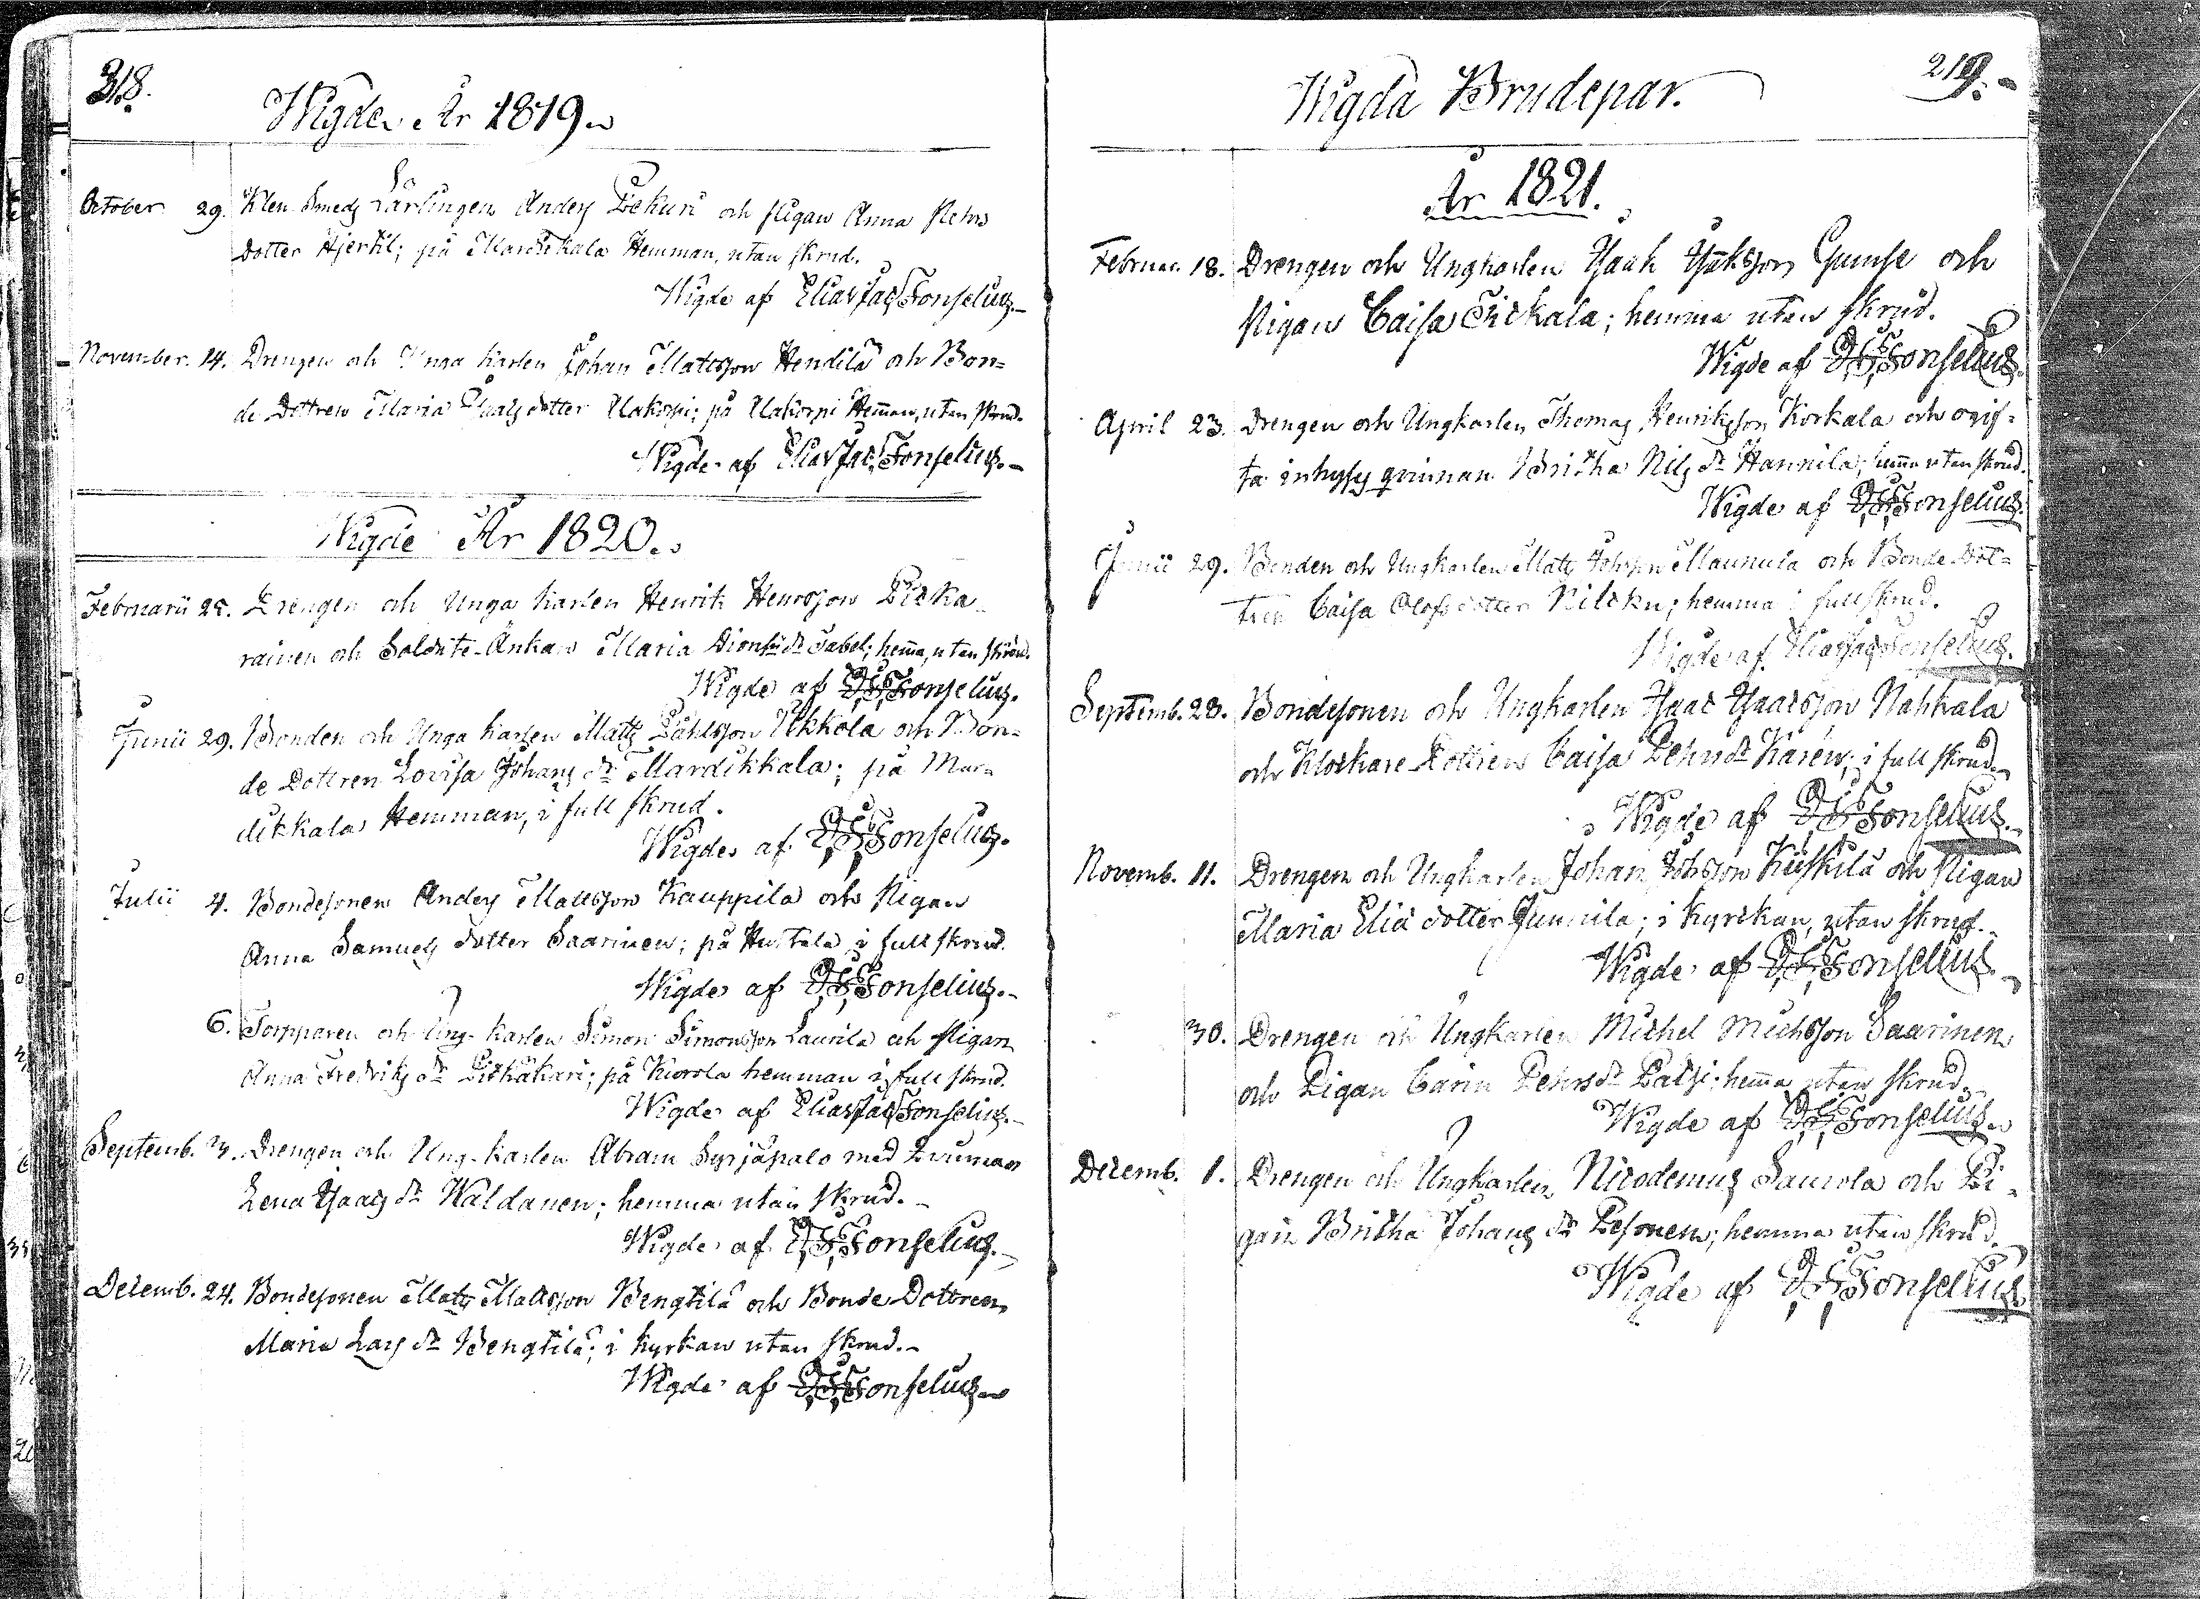 318.
Wigde År 1819.
October 29. Klen Smeds Lärlingen Anders Pekuri och Pigan Anna Pehrs
dotter Hjertil; på Mardikkala Hemman, utan skrud.
Wigde af Elias Jac. Fonselius.
November. 14. Drengen och Unga Karlen Johan Mattsson Hendilä och Bon=
de Dottren Maria Isaacs dotter Ulakorpi; på Ulakorpi Hemman, utan skrud.
Wigde af Elias Jac. Fonselius.
Wigde År 1820.
Februarii 25. Drengen och Unga Karlen Henrik Henrsson Pitka
rainen och Soldate-Änkan Maria Dionisii dr Sabel; hemma, utan skrud.
Wigde af E J Fonselius.
Junii 29. Bonden och Unga Karlen Matts Påhlsson Ukkola och Bon=
de Dottren Lovisa Johans dr Mardikkala; på Mar=
dikkala Hemman, i full skrud.
Wigde af E J Fonselius.
Julii 4. Bondesonen Anders Mattsson Kauppila och Pigan
Anna Samuels dotter Saarinen; på i full skrud.
Wigde af E J Fonselius.
6. Torpparen och Ung-Karlen Simon Simonsson Laurila och Pigan
Anna Fredriks dr Pitkäkari; på hemman i full skrud.
Wigde af Elias Jac Fonselius.
Septemb. 3. Drengen och Ung-Karlen Abram Syrjäpalo med
Lena Isaacs dr Waldanen; hemma utan skrud.
Wigde af E J Fonselius.
Decemb. 24. Bondesonen Matts Mattsson Bengtilä och Bonde Dottren
Maria Lars dr Bengtilä; i kyrkan utan skrud.
Wigde af E J Fonselius
Wigda Brudepar.
219.
År 1821.
Februar. 18. Drengen och Ungkarlen Isaak Isaksson Gumse och
Pigan Caisa; hemma utan skrud.
Wigde af E J Fonselius.
April 23. Drengen och Ungkarlen Thomas Henriksson Korkala och ogif=
ta inhyses qvinnan Britha Nils dr Hannila; hemma utan skrud.
Wigde af E J Fonselius.
Junii 29. Bonden och Ungkarlen Matts Johsson Maunula och Bonde Dot=
tren Caisa Olofs dotter; hemma i full skrud.
Wigde af Elias Jac Fonselius.
Septemb. 23. Bondesonen och Ungkarlen Isaac Isaacsson Nahkala
och Klockare Dottren Caisa Pehrs dr Karen; i full skrud.
Wigde af E J Fonselius.
Novemb. 11. Drengen och Ungkarlen Johan Johsson Kiiskilä och Pigan
Maria Eliä dotter Junnila; i Kyrckan, utan skrud.
Wigde af E J Fonselius.
30. Drengen och Ungkarlen Michel Michsson Saarinen
och Pigan Carin Pehrs dr Patsi; hemma utan skrud.
Wigde af E J Fonselius.
Decemb. 1. Drengen och Ungkarlen Nicodemus Saurola och Pi=
gan Britha Johans dr Pesonen; hemma utan skrud.
Wigde af E J Fonselius.